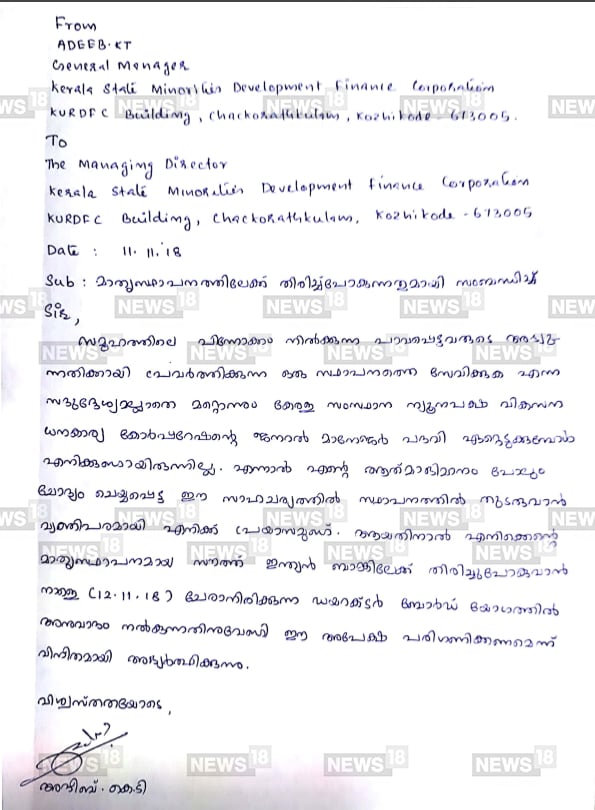 From
ADEEB.KT
General Manager
Kerala State Minorities Development Finance Corporation
KURDFC Building, Chackorathkulam, Kozhikode - 673005.
To
The Managing Director
Kerala State Minorities Development Finance Corporation
KURDFC Building, Chackorathkulam, Kozhikode - 673005
Date : 11.11.'18
Sub : മാതൃസ്ഥാപനത്തിലേക്ക് തിരിച്ചുപോകുന്നതുമായി സംബന്ധിച്ച്
Sir,
സമൂഹത്തിലെ പിന്നോക്കം നിൽക്കുന്ന പാവപ്പെട്ടവരുടെ അഭ്യു-
ന്നതിക്കായി പ്രവർത്തിക്കുന്ന ഒരു സ്ഥാപനത്തെ സേവിക്കുക എന്ന
സദുദ്ദേശ്യമല്ലാതെ മറ്റൊന്നും കേരള സംസ്ഥാന ന്യൂനപക്ഷ വികസന
ധനകാര്യ കോർപ്പറേഷന്റെ ജനറൽ മാനേജർ പദവി ഏറ്റെടുക്കുമ്പോൾ
എനിക്കുണ്ടായിരുന്നില്ല. എന്നാൽ എന്റെ ആത്മാഭിമാനം പോലും
ചോദ്യം ചെയ്യപ്പെട്ട ഈ സാഹചര്യത്തിൽ സ്ഥാപനത്തിൽ തുടരുവാൻ
വ്യക്തിപരമായി എനിക്ക് പ്രയാസമുണ്ട്. ആയതിനാൽ എനിക്കെന്റെ
മാതൃസ്ഥാപനമായ സൗത്ത് ഇന്ത്യൻ ബാങ്കിലേക്ക് തിരിച്ചുപോകുവാൻ
നാളെ (12.11.18) ചേരാനിരിക്കുന്ന ഡയറക്ടർ ബോർഡ് യോഗത്തിൽ
അനുവാദം നൽകുന്നതിനുവേണ്ടി ഈ അപേക്ഷ പരിഗണിക്കണമെന്ന്
വിനീതമായി അഭ്യർത്ഥിക്കുന്നു.
വിശ്വസ്തതയോടെ,
അദീബ്. കെ.ടി
NEWS 18